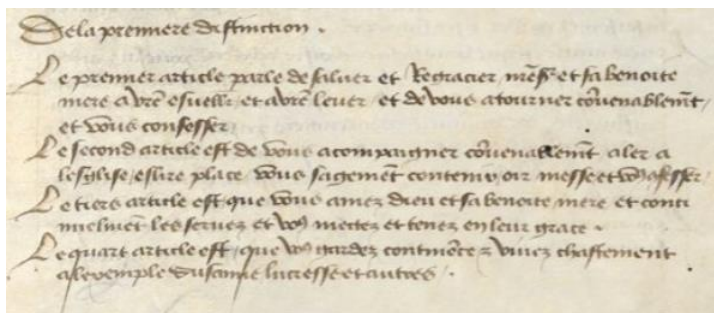 De la premiere distinction .
Le premier article parle de saluer et Regracier nr̃e sr̃ et sa benoite
mere a vr̃e esueiller et a vr̃e leuer / et de vous atourner cõuenablemẽt /
et vous confesser
Le second article est de vous acompaigner cõuenablemẽt aler a
leglise / eslire place / vous sagemẽt contenir oir messe et vo9 cõfesser /
Le tiers article est que vous amez dieu et sa benoite mere et conti
nuelmẽt les seruez et vo9 mectez et tenez en leur grace .
Le quart article est / que vo9 gardez continẽce & viuez chastement
a lexemple susanne lucresse et autres .